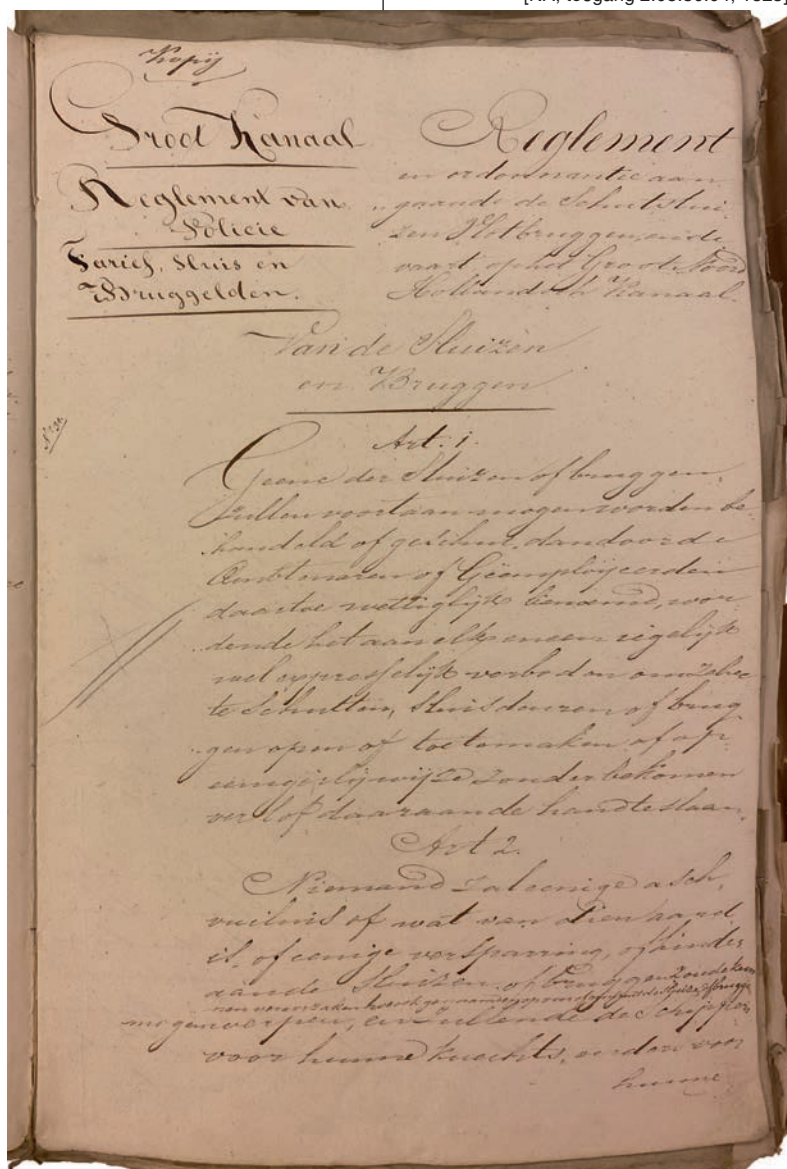 Kopij
Groot Kanaal
Reglement van
Policie
Tarief, Sluis en
Bruggelden.
Reglement
en ordonnantie aan
gaande de Schutslui
zen Vlotbruggen, en de
vaart op het Groot Noord
Hollandsch Kanaal.
Van de Sluizen
en Bruggen
Art. 1.
Geene der Sluizen of bruggen,
zullen voortaan mogen worden be
handeld of geschut, dan door de
Ambtenaren of Geëmployeerden
daartoe wettiglijk benoemd, wor
dende het aan elk en een iegelijk
wel expresselijk verboden om zelve
te Schutten, Sluisdeuren of brug
gen open of toe te maken of op
eenigerlij wijze zonder bekomen
verlof daaraan de hand te slaan.
Art 2.
Niemand zal eenige asch,
vuilnis of wat van dien aard
is, of eenige versparring, of hinder
aan de Sluizen of bruggen zoude kun
nen veroorzaken
mogen werpen, en zullende de Schippers
voor hunne knechts, ouders voor
hunne